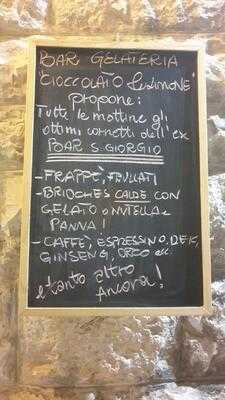 BAR GELATERIA
"CIOCCOLATO & LIMONE"
propone:
Tutte le mattine gli
ottimi cornetti dell'ex
BAR S. GIORGIO
- FRAPPÈ, FRULLATI
- BRIOCHES CALDE CON
GELATO o NUTELLA e
PANNA!
- CAFFÈ, ESPRESSINO, DEK,
GINSENG, ORZO ecc.
e tanto altro
Ancora!